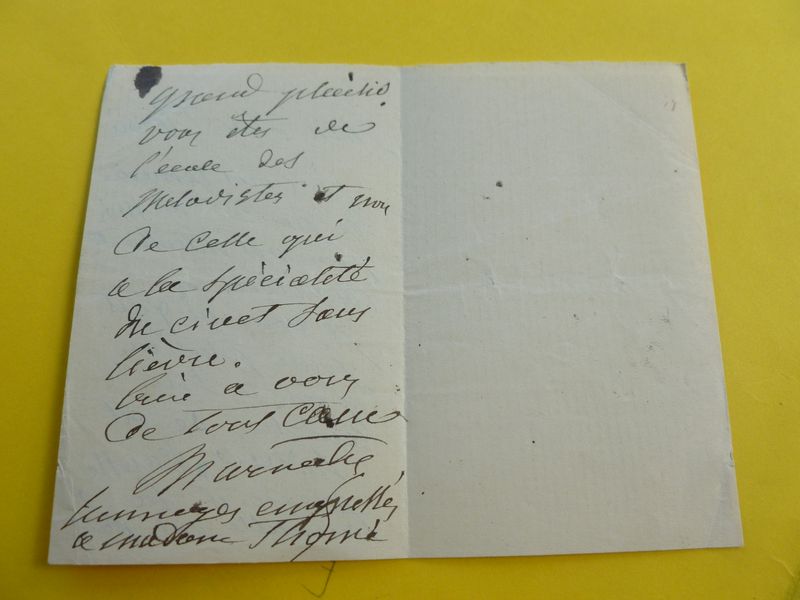 grand plaisir
vous êtes de
l'école des
Mélodistes et non
de celle qui
a la spécialité
du civet sans
lièvre.
bien à vous
de tout cœur
hommages empressés
a madame Thomé